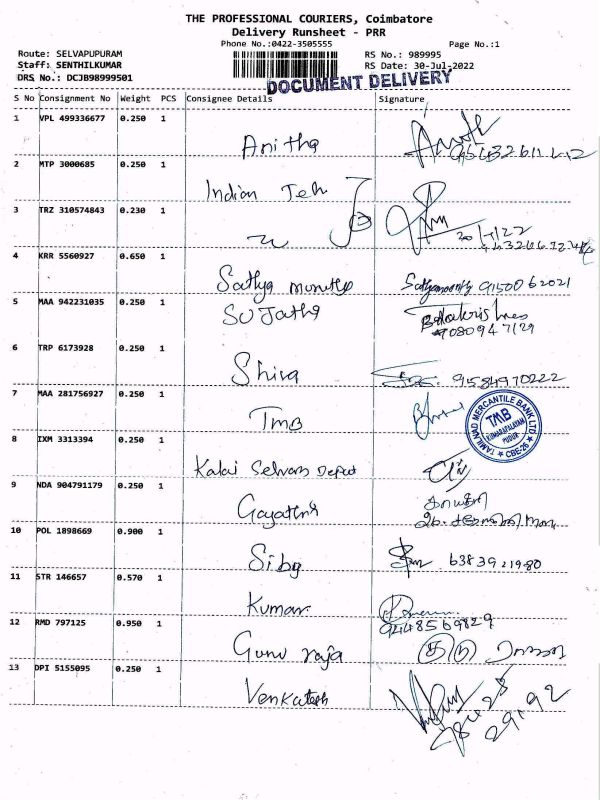 THE PROFESSIONAL COURIERS, Coimbatore
Delivery Runsheet - PRR
Phone No.:0422-3505555
Page No.:1
Route: SELVAPUPURAM
RS No.: 989995
Staff: SENTHILKUMAR
RS Date: 30-Jul-2022
DRS No.: DCJB98999501
DOCUMENT DELIVERY
S No Consignment No Weight PCS Consignee Details Signature
1 VPL 499336677 0.250 1 Anitha
2 MTP 3000685 0.250 1 Indian Teh
3 TRZ 310574843 0.230 1
4 KRR 5560927 0.650 1 Sathya 91500 62021
5 MAA 942231035 0.250 1 SUJatha
6 TRP 6173928 0.250 1 Shiva 9584970222
7 MAA 281756927 0.250 1 TMB
TAMILNAD MERCANTILE BANK LTD
TMB
KUMARAPALAYAM
PUDUR
CBE-26
8 IXM 3313394 0.250 1 Kalai Selvam Depot
9 NDA 904791179 0.250 1 Gayathri
10 POL 1898669 0.900 1 Siby 6383921980
11 STR 146657 0.570 1 Kumar 9448569829
12 RMD 797125 0.950 1 Guru raja
13 DPI 5155095 0.250 1 Venkatesh